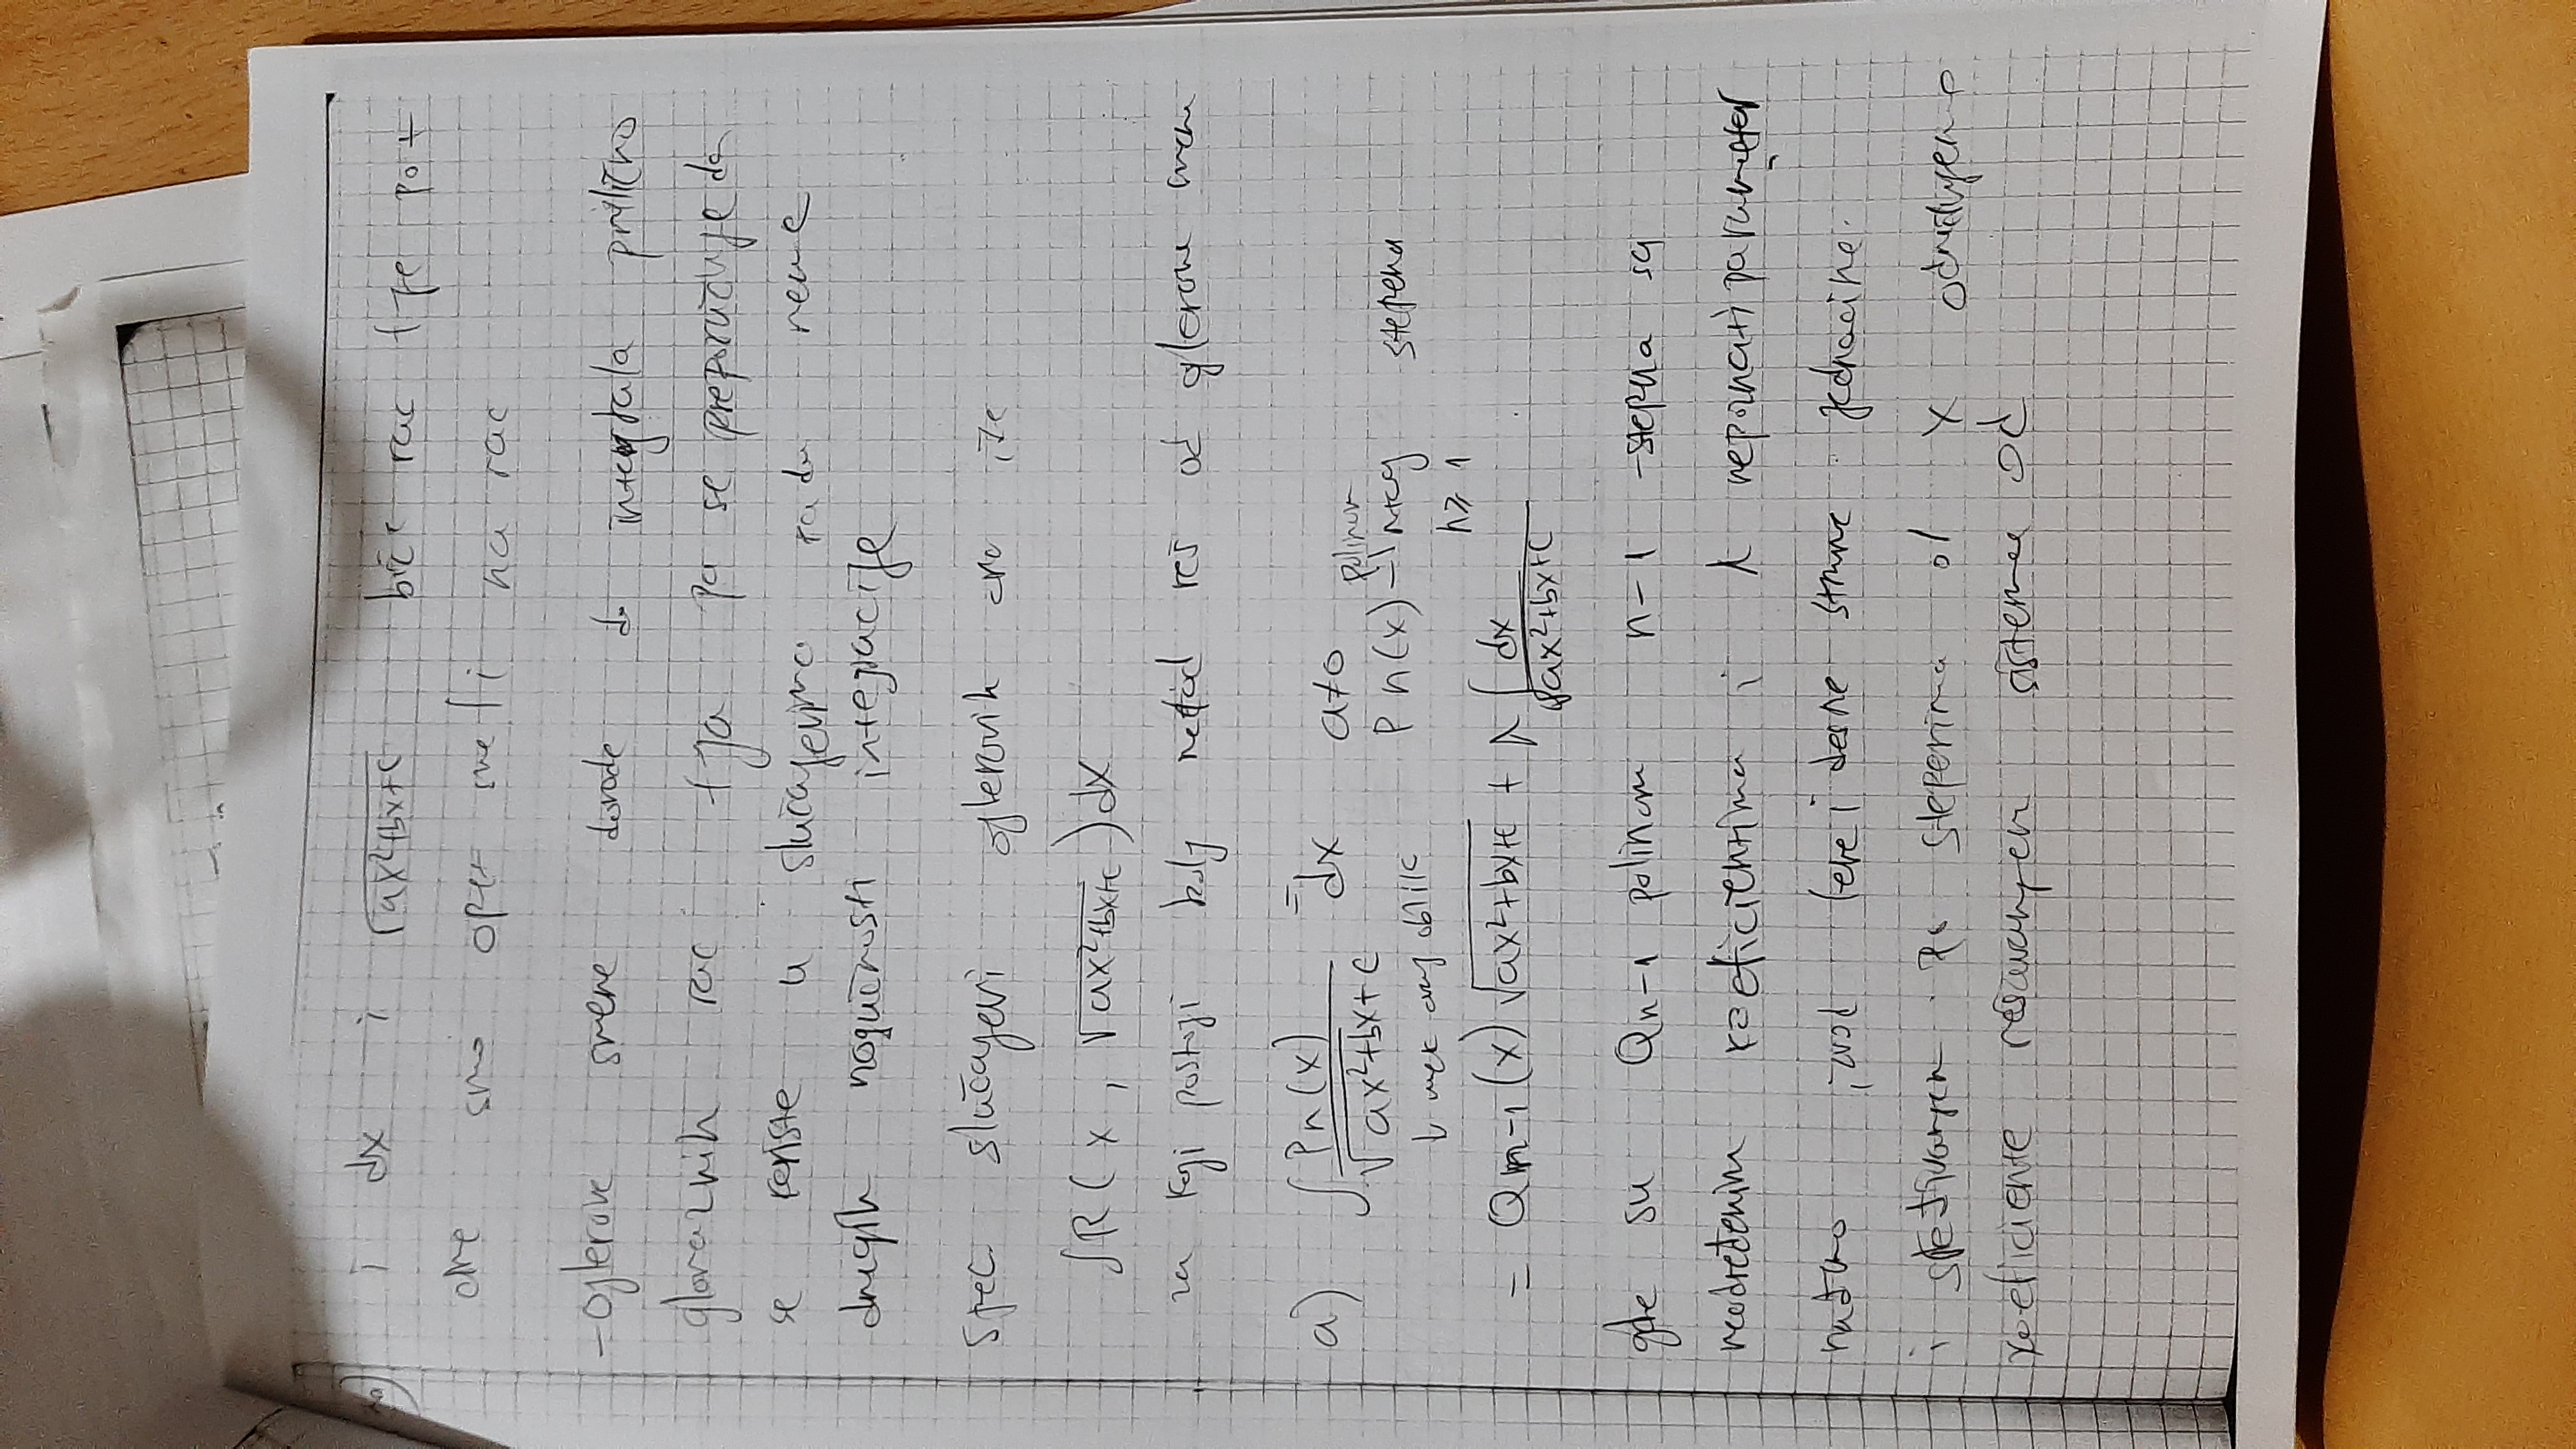 i dx i √ax²+bx+c biće rac f je pot
sme smo opet sveli na rac
- Ojlerove smene dovode do integrala prilično
glomaznih rac f ja pa se preporučuje da
se koriste u slučajevima kada nema
drugih mogućnosti integracije
Spec. slučajevi ojlerovih
∫R(x, √ax²+bx+c)dx
za koji postoji bolj metod reš od ojlerove smene
a) ∫ Pn(x) / √ax²+bx+c dx = a≠0
Pn(x) - polinom n-tog stepena
↓ uvek ovaj oblik n ≥ 1
= Qn-1(x) √ax²+bx+c + λ ∫ dx / √ax²+bx+c
gde su Qn-1 polinom n-1 -stepena sa
neodređenim koeficientima i λ nepoznati parametar
nađemo izvod leve i desne strane jednacine.
i sređivanjem po stepenima od x određujemo
koeficiente rešavanjem sistema od